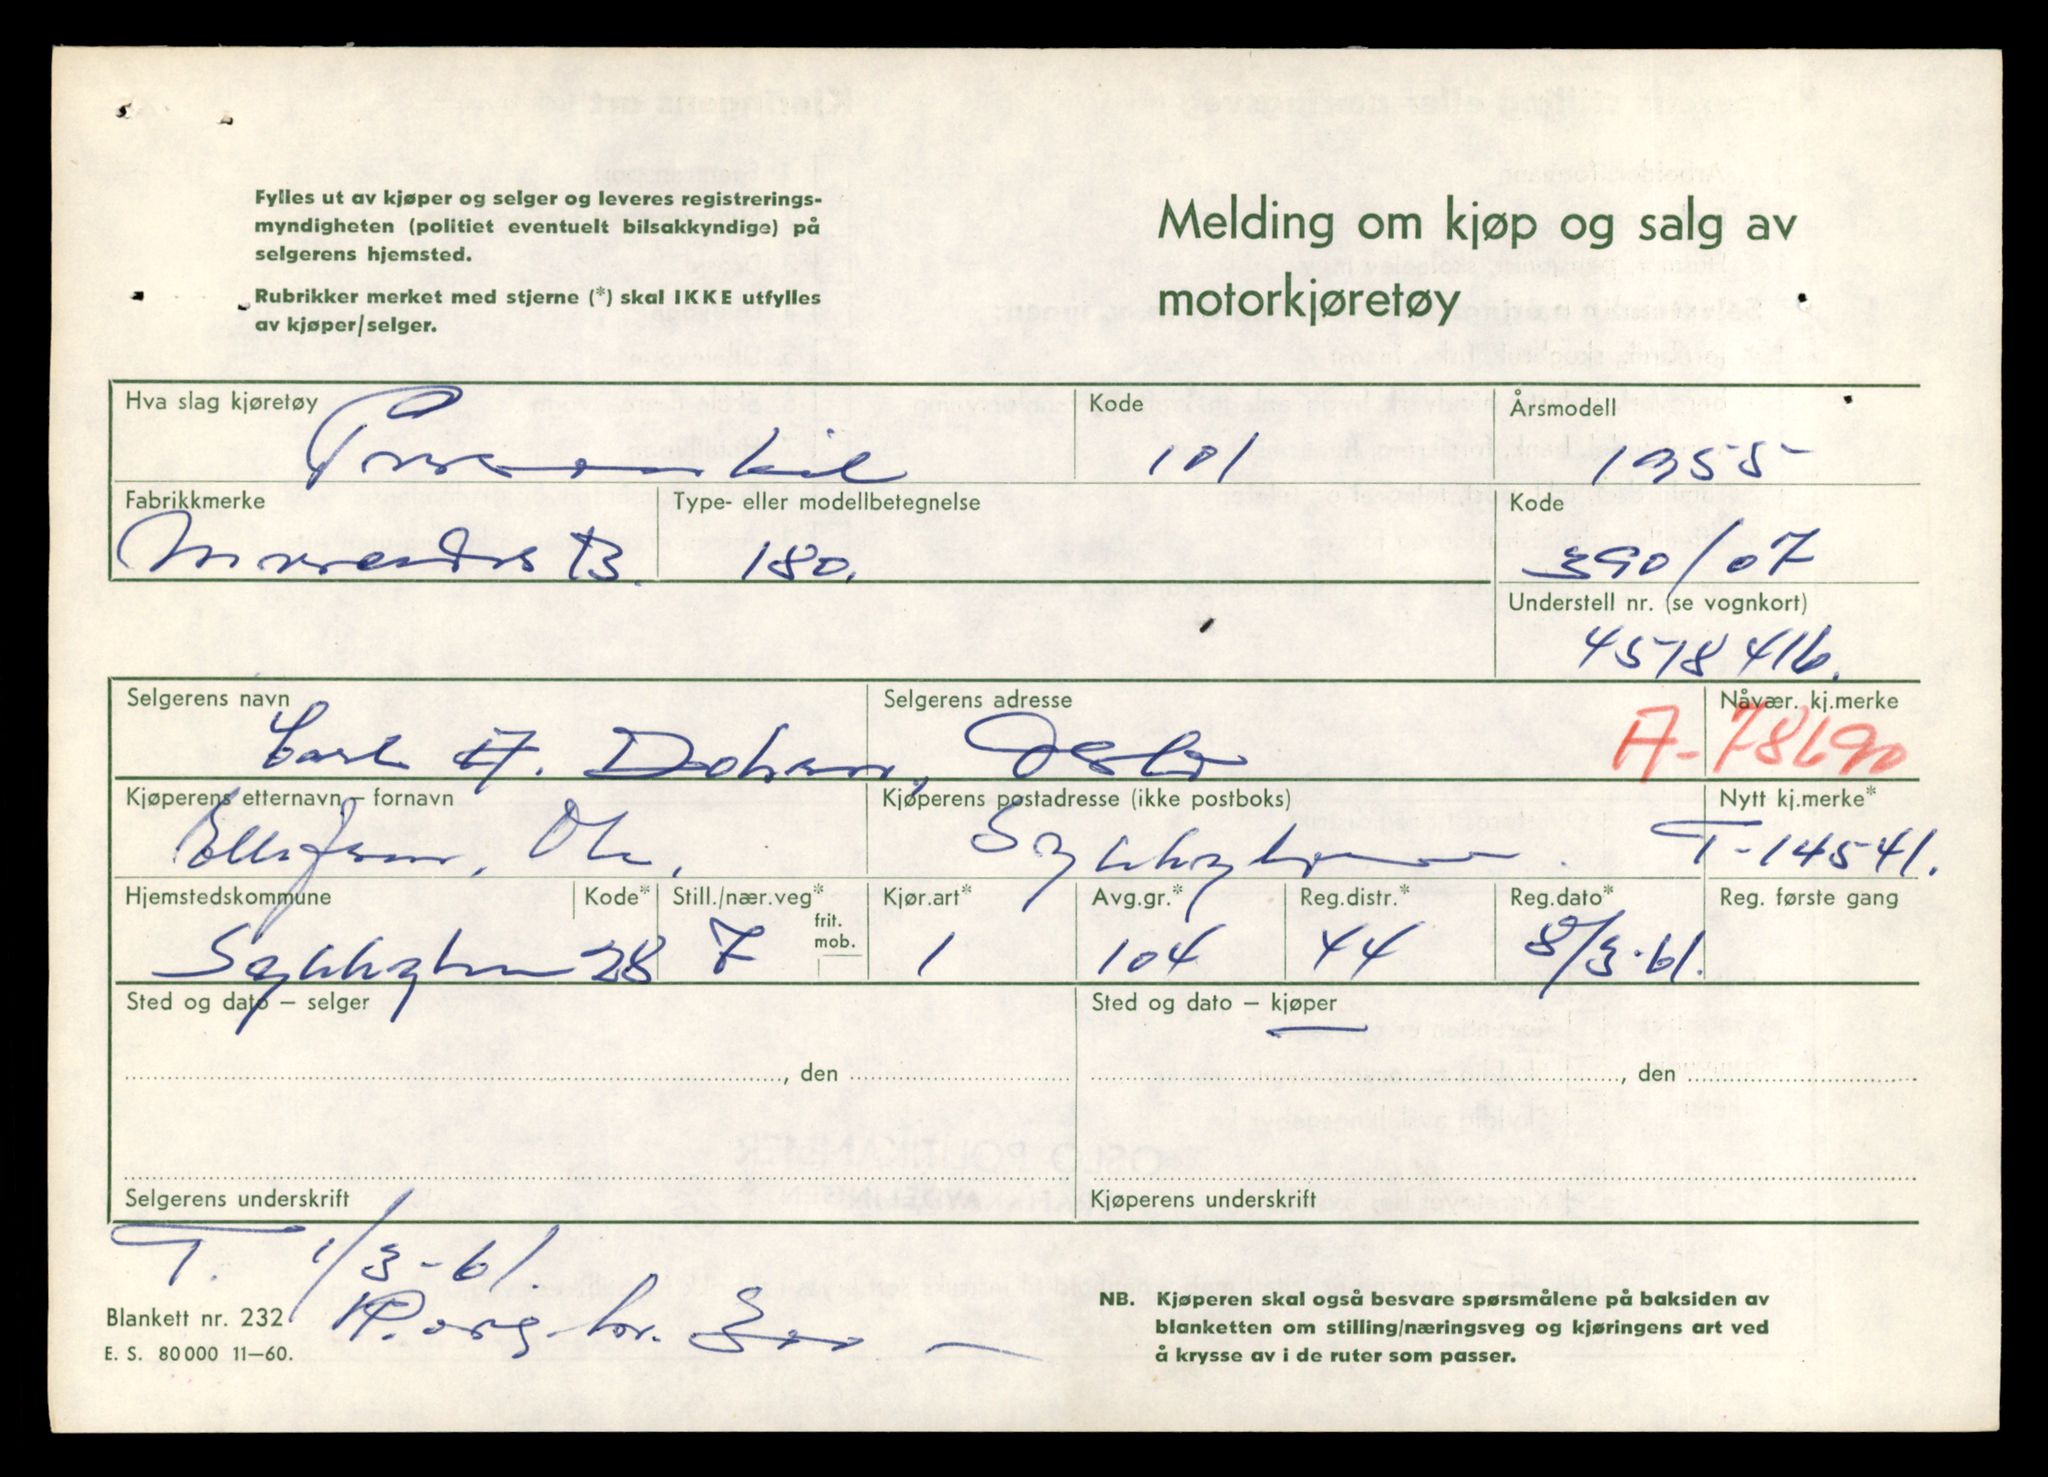 Fylles ut av kjøper og selger og leveres registrerings-
myndigheten (politiet eventuelt bilsakkyndige) på
selgerens hjemsted.
Rubrikker merket med stjerne (*) skal IKKE utfylles
av kjøper/selger.
Melding om kjøp og salg av
motorkjøretøy
Hva slag kjøretøy
Personbil
Kode
101
Årsmodell
1955
Fabrikkmerke
Mercedes B.
Type- eller modellbetegnelse
180.
Kode
390/07
Understell nr. (se vognkort)
4518416.
Selgerens navn
Carl A.
Selgerens adresse
Oslo
Nåvær. kj.merke
A-78690
Kjøperens etternavn – fornavn
Ellefsen, Ole,
Kjøperens postadresse (ikke postboks)
Sykkylven.
Nytt kj.merke*
T-14541.
Hjemstedskommune
Sykkylven
Kode*
28
Still./nær.veg*
7
frit.
mob.
Kjør.art*
1
Avg.gr.*
104
Reg.distr.*
44
Reg.dato*
8/3-61.
Reg. første gang
Sted og dato – selger
Sted og dato – kjøper
, den
, den
Selgerens underskrift
Kjøperens underskrift
T. 1/3-61.
Blankett nr. 232
E. S. 80000 11–60.
NB. Kjøperen skal også besvare spørsmålene på baksiden av
blanketten om stilling/næringsveg og kjøringens art ved
å krysse av i de ruter som passer.